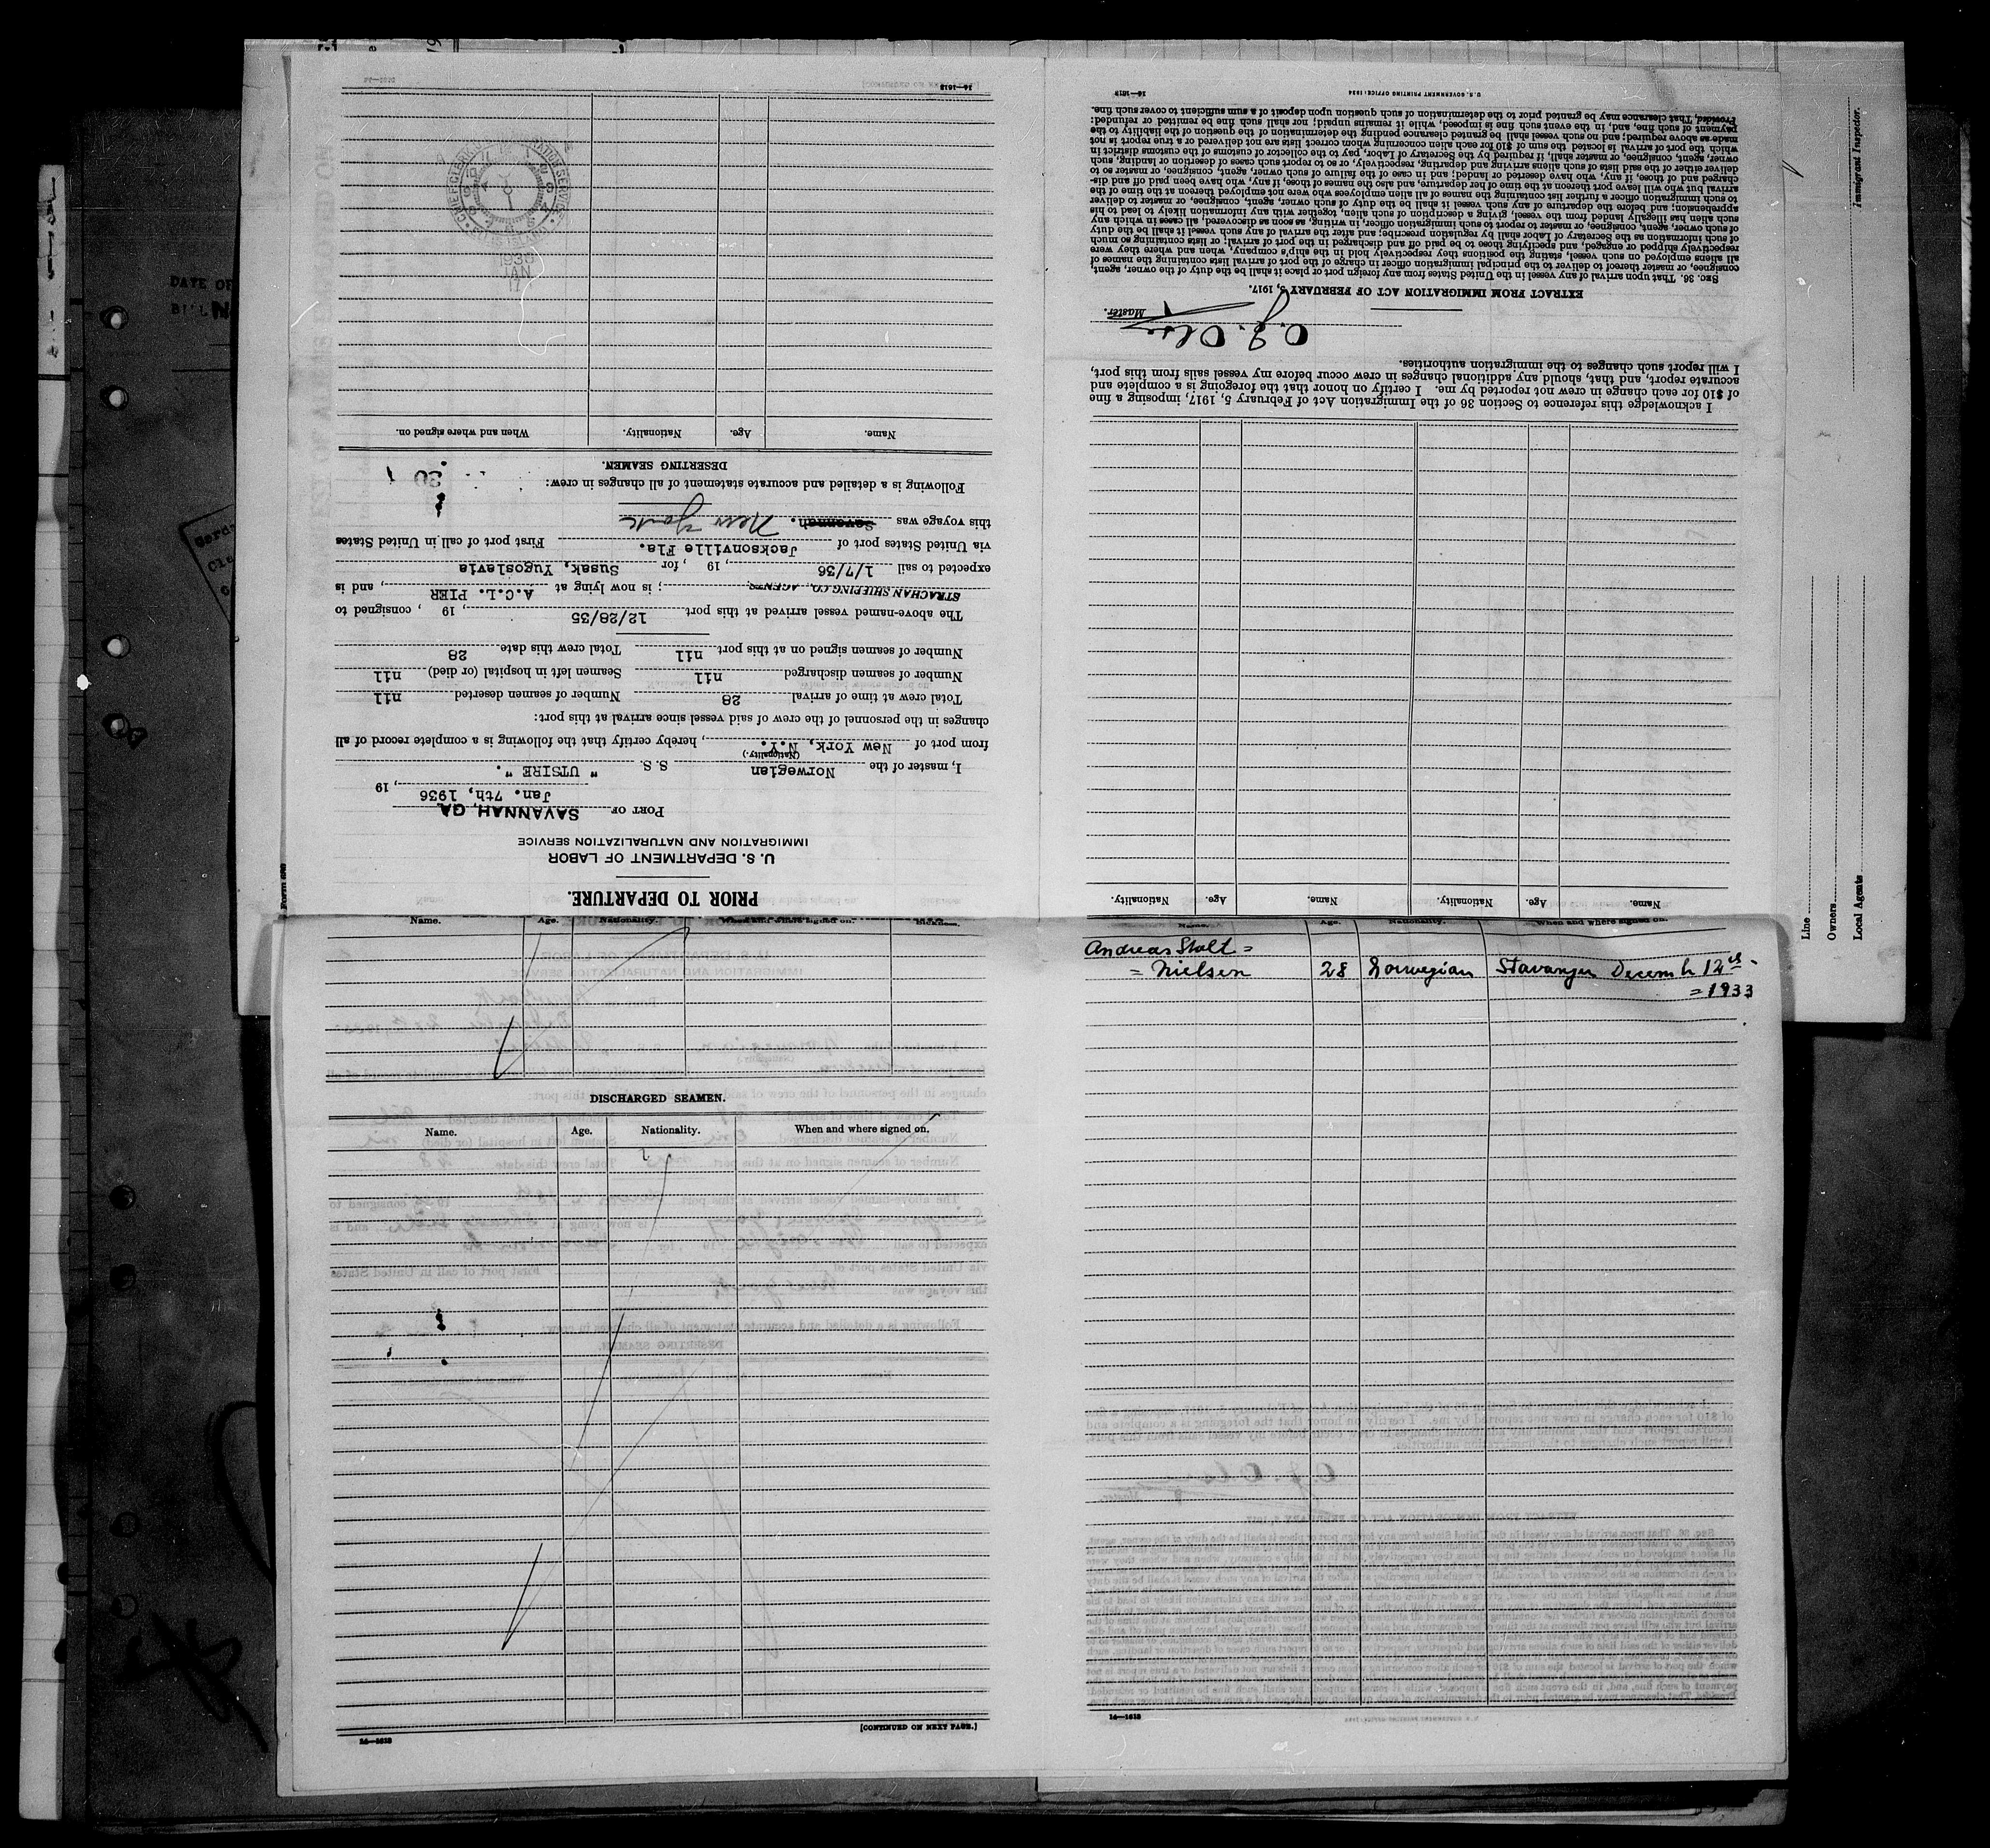 PRIOR TO DEPARTURE.
U. S. DEPARTMENT OF LABOR
IMMIGRATION AND NATURALIZATION SERVICE
PORT OF SAVANNAH, GA
Jan. 7th, 1936, 19
I, master of the Norwegian S. S. " UTSIRE ".
(Nationality.)
from port of New York, N.Y., hereby certify that the following is a complete record of all
changes in the personnel of the crew of said vessel since arrival at this port:
Total crew at time of arrival 28 Number of seamen deserted nil
Number of seamen discharged nil Seamen left in hospital (or died) nil
Number of seamen signed on at this port nil Total crew this date 28
The above-named vessel arrived at this port 12/28/35, 19 , consigned to
STRACHAN SHIPPING CO., AGENTS; is now lying at A.C.L. PIER, and is
expected to sail 1/7/36, 19 , for Susak, Yugoslavia
via United States port of Jacksonville Fla. First port of call in United States
this voyage was Savannah. New York
Following is a detailed and accurate statement of all changes in crew:
DESERTING SEAMEN.
Name. Age. Nationality. When and where signed on.
1936
JAN
17
16—1618
Form 689
Name. Age. Nationality. Name. Age. Nationality.
I acknowledge this reference to Section 36 of the Immigration Act of February 5, 1917, imposing a fine
of $10 for each change in crew not reported by me. I certify on honor that the foregoing is a complete and
accurate report, and that, should any additional changes in crew occur before my vessel sails from this port,
I will report such changes to the immigration authorities.
O. J. Olsen
Master.
EXTRACT FROM IMMIGRATION ACT OF FEBRUARY 5, 1917.
SEC. 36. That upon arrival of any vessel in the United States from any foreign port or place it shall be the duty of the owner, agent,
consignee, or master thereof to deliver to the principal immigration officer in charge of the port of arrival lists containing the names of
all aliens employed on such vessel, stating the positions they respectively hold in the ship's company, when and where they were
respectively shipped or engaged, and specifying those to be paid off and discharged in the port of arrival; or lists containing so much
of such information as the Secretary of Labor shall by regulation prescribe; and after the arrival of any such vessel it shall be the duty
of such owner, agent, consignee, or master to report to such immigration officer, in writing, as soon as discovered, all cases in which any
such alien has illegally landed from the vessel, giving a description of such alien, together with any information likely to lead to his
apprehension; and before the departure of any such vessel it shall be the duty of such owner, agent, consignee, or master to deliver
to such immigration officer a further list containing the names of all alien employees who were not employed thereon at the time of the
arrival but who will leave port thereon at the time of her departure, and also the names of those, if any, who have been paid off and dis-
charged and of those, if any, who have deserted or landed; and in case of the failure of such owner, agent, consignee, or master so to
deliver either of the said lists of such aliens arriving and departing, respectively, or so to report such cases of desertion or landing, such
owner, agent, consignee, or master, shall, if required by the Secretary of Labor, pay to the collector of customs of the customs district in
which the port of arrival is located the sum of $10 for each alien concerning whom correct lists are not delivered or a true report is not
made as above required; and no such vessel shall be granted clearance pending the determination of the question of the liability to the
payment of such fine, and, in the event such fine is imposed, while it remains unpaid; nor shall such fine be remitted or refunded:
Provided, That clearance may be granted prior to the determination of such question upon deposit of a sum sufficient to cover such fine.
16—1618 U. S. GOVERNMENT PRINTING OFFICE: 1934
Name. Age. Nationality. When and where signed on.
DISCHARGED SEAMEN.
Name. Age. Nationality. When and where signed on.
[CONTINUED ON NEXT PAGE.]
14—1618
Name. Age. Nationality. When and where signed on.
Andreas Stolt =
= Nielsen 28 Norwegian Stavanger Decemb 12th -
= 1933
14—1618
Immigrant Inspector.
Line
Owners
Local Agents
DATE OF